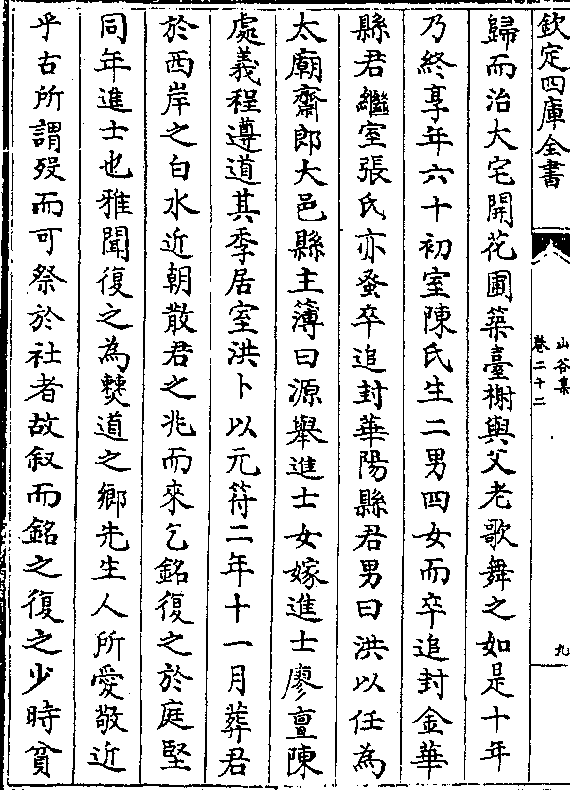 欽定四庫全書
山谷集
卷二十二
九
歸而治大宅開花圃築臺榭與父老歌舞之如是十年
乃終享年六十初室陳氏生二男四女而卒追封金華
縣君繼室張氏亦蚤卒追封華陽縣君男曰洪以任為
太廟齋郎大邑縣主簿曰源舉進士女嫁進士廖亶陳
處義程遵道其季居室洪卜以元符二年十一月葬君
於西岸之白水近朝散君之兆而來乞銘復之於庭堅
同年進士也雅聞復之為僰道之鄉先生人所愛敬近
乎古所謂歿而可祭於社者故叙而銘之復之少時貧